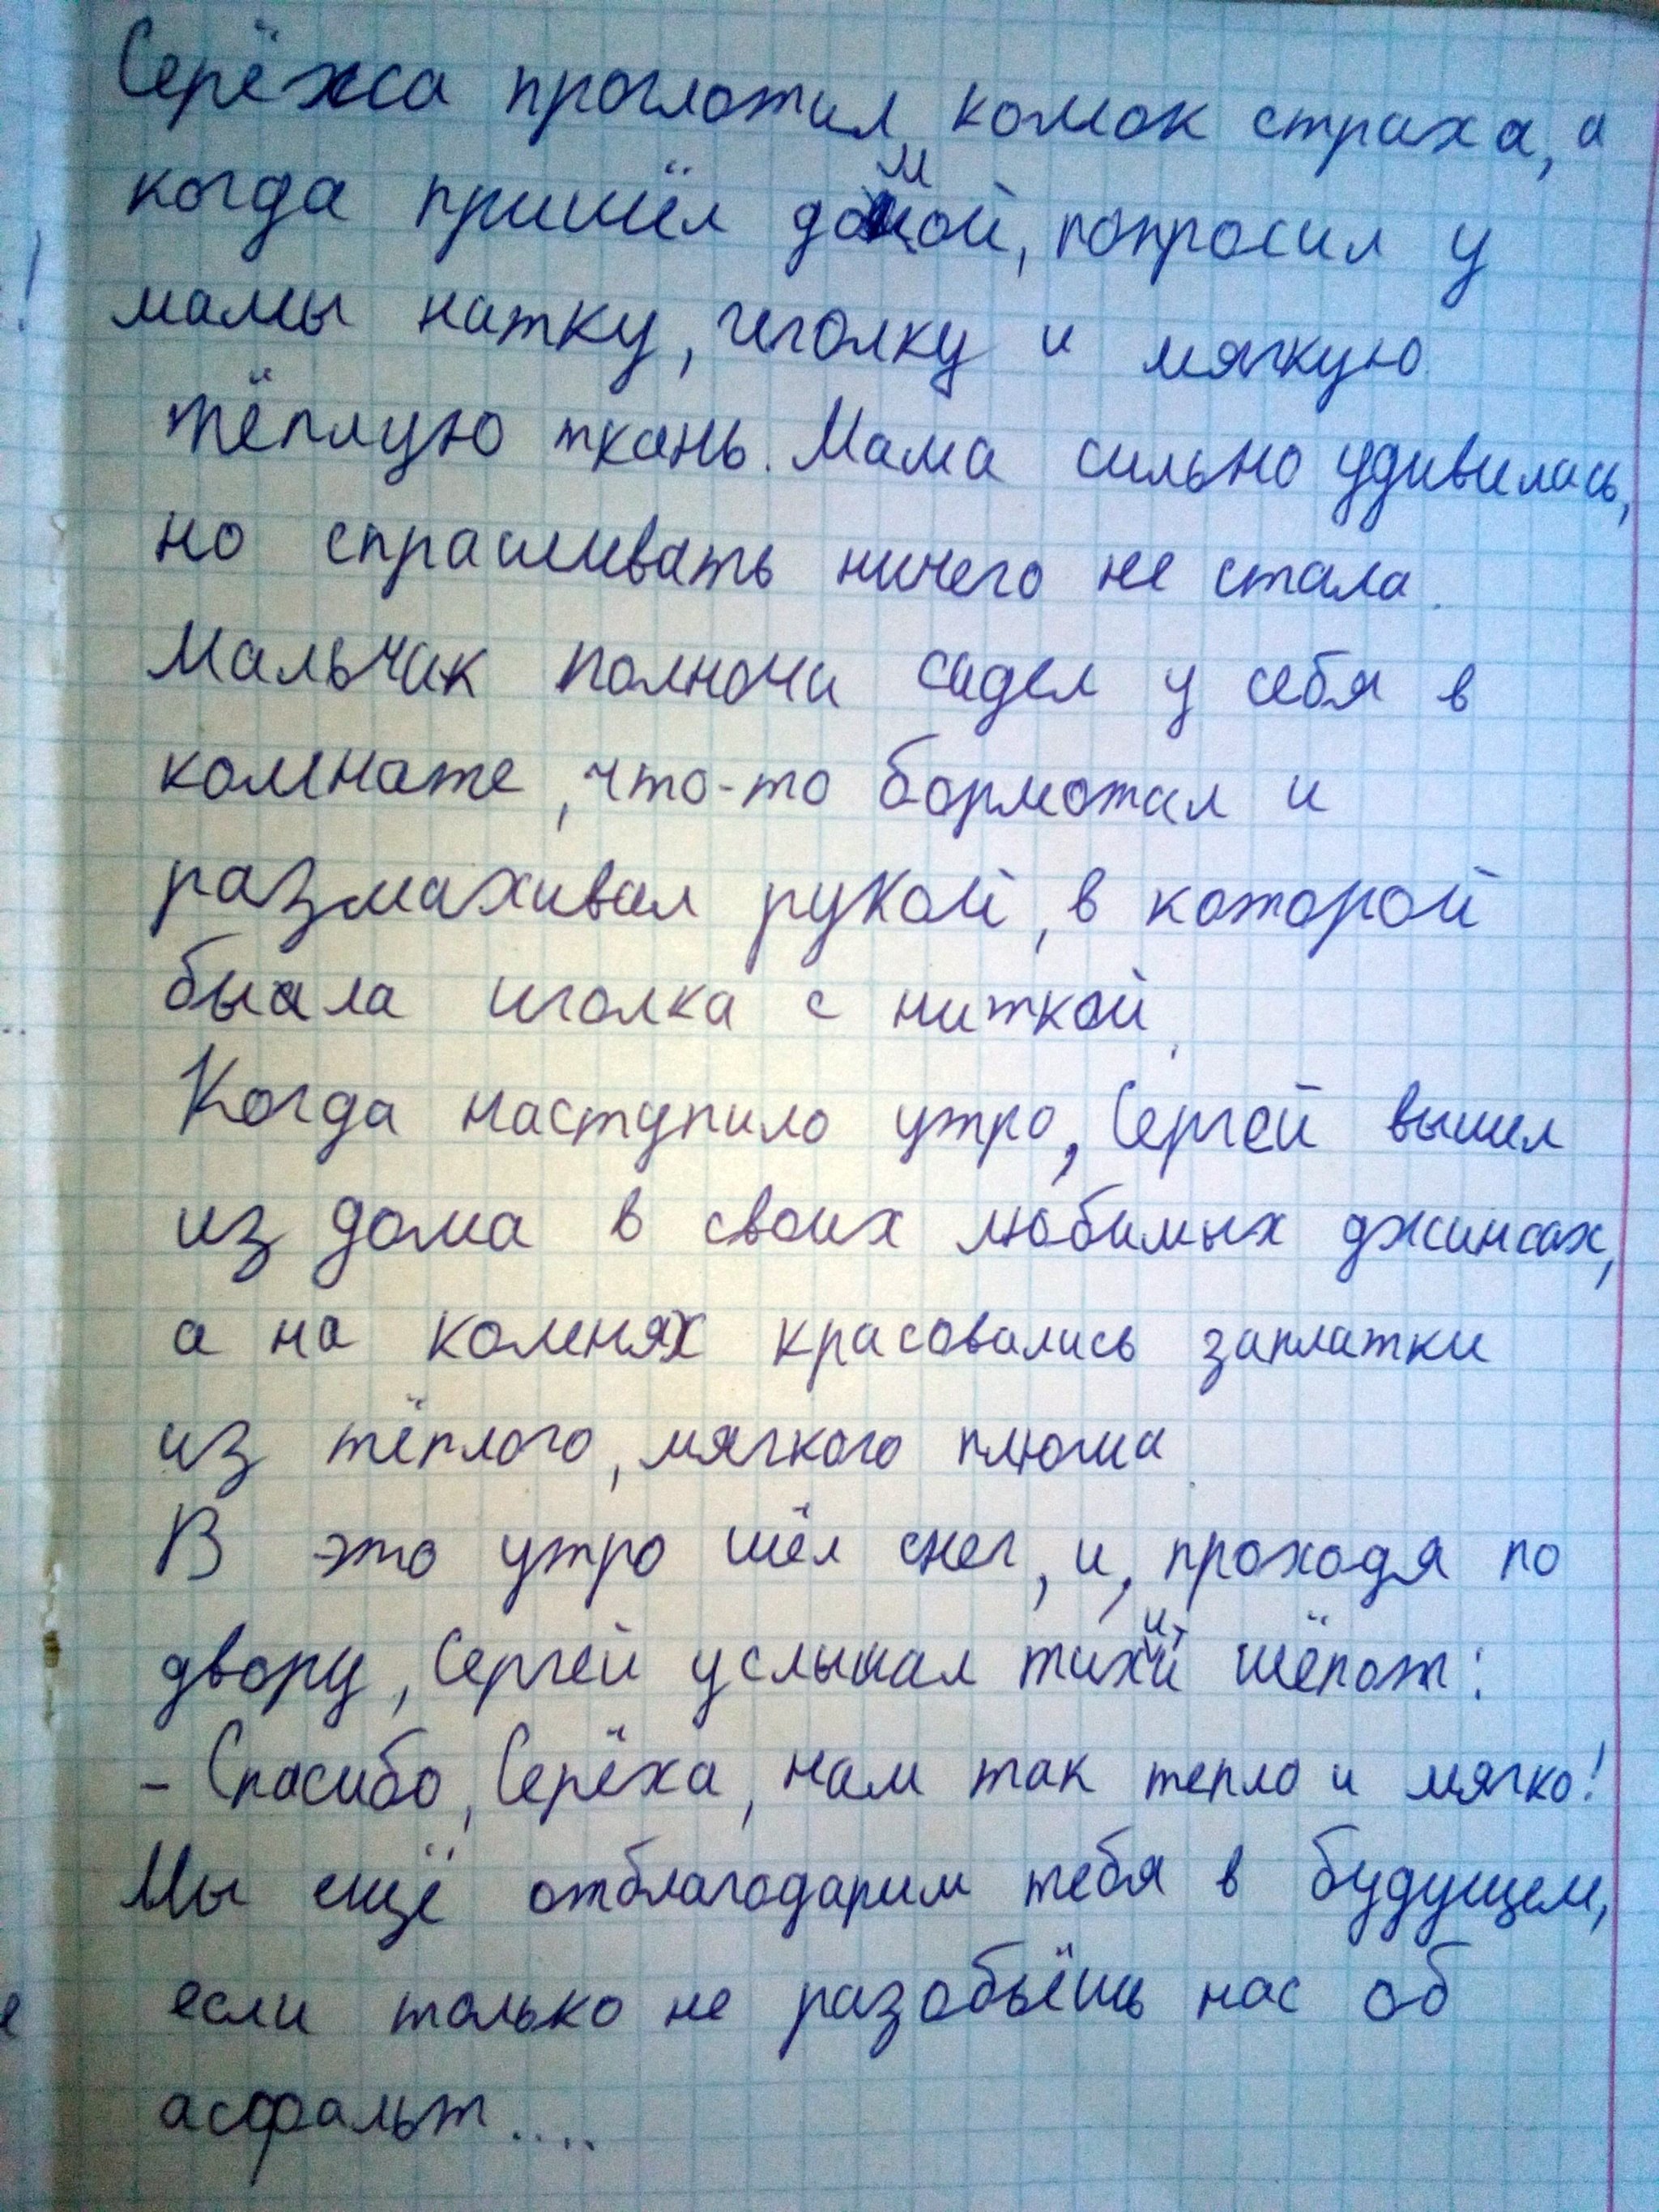 Серёжа проглотил комок страха, а
когда пришёл домой, попросил у
мамы натку, иголку и мягкую
тёплую ткань. Мама сильно удивилась,
но спрашивать ничего не стала.
Мальчик полночи сидел у себя в
комнате, что-то бормотал и
размахивал рукой, в которой
была иголка с ниткой.
Когда наступило утро, Сергей вышел
из дома в своих любимых джинсах,
а на коленях красовались заплатки
из тёплого, мягкого плюша.
В это утро шёл снег, и, проходя по
двору, Сергей услышал тихий шёпот:
- Спасибо, Серёха, нам так тепло и мягко!
Мы ещё отблагодарим тебя в будущем,
если только не разобьёшь нас об
асфальт....